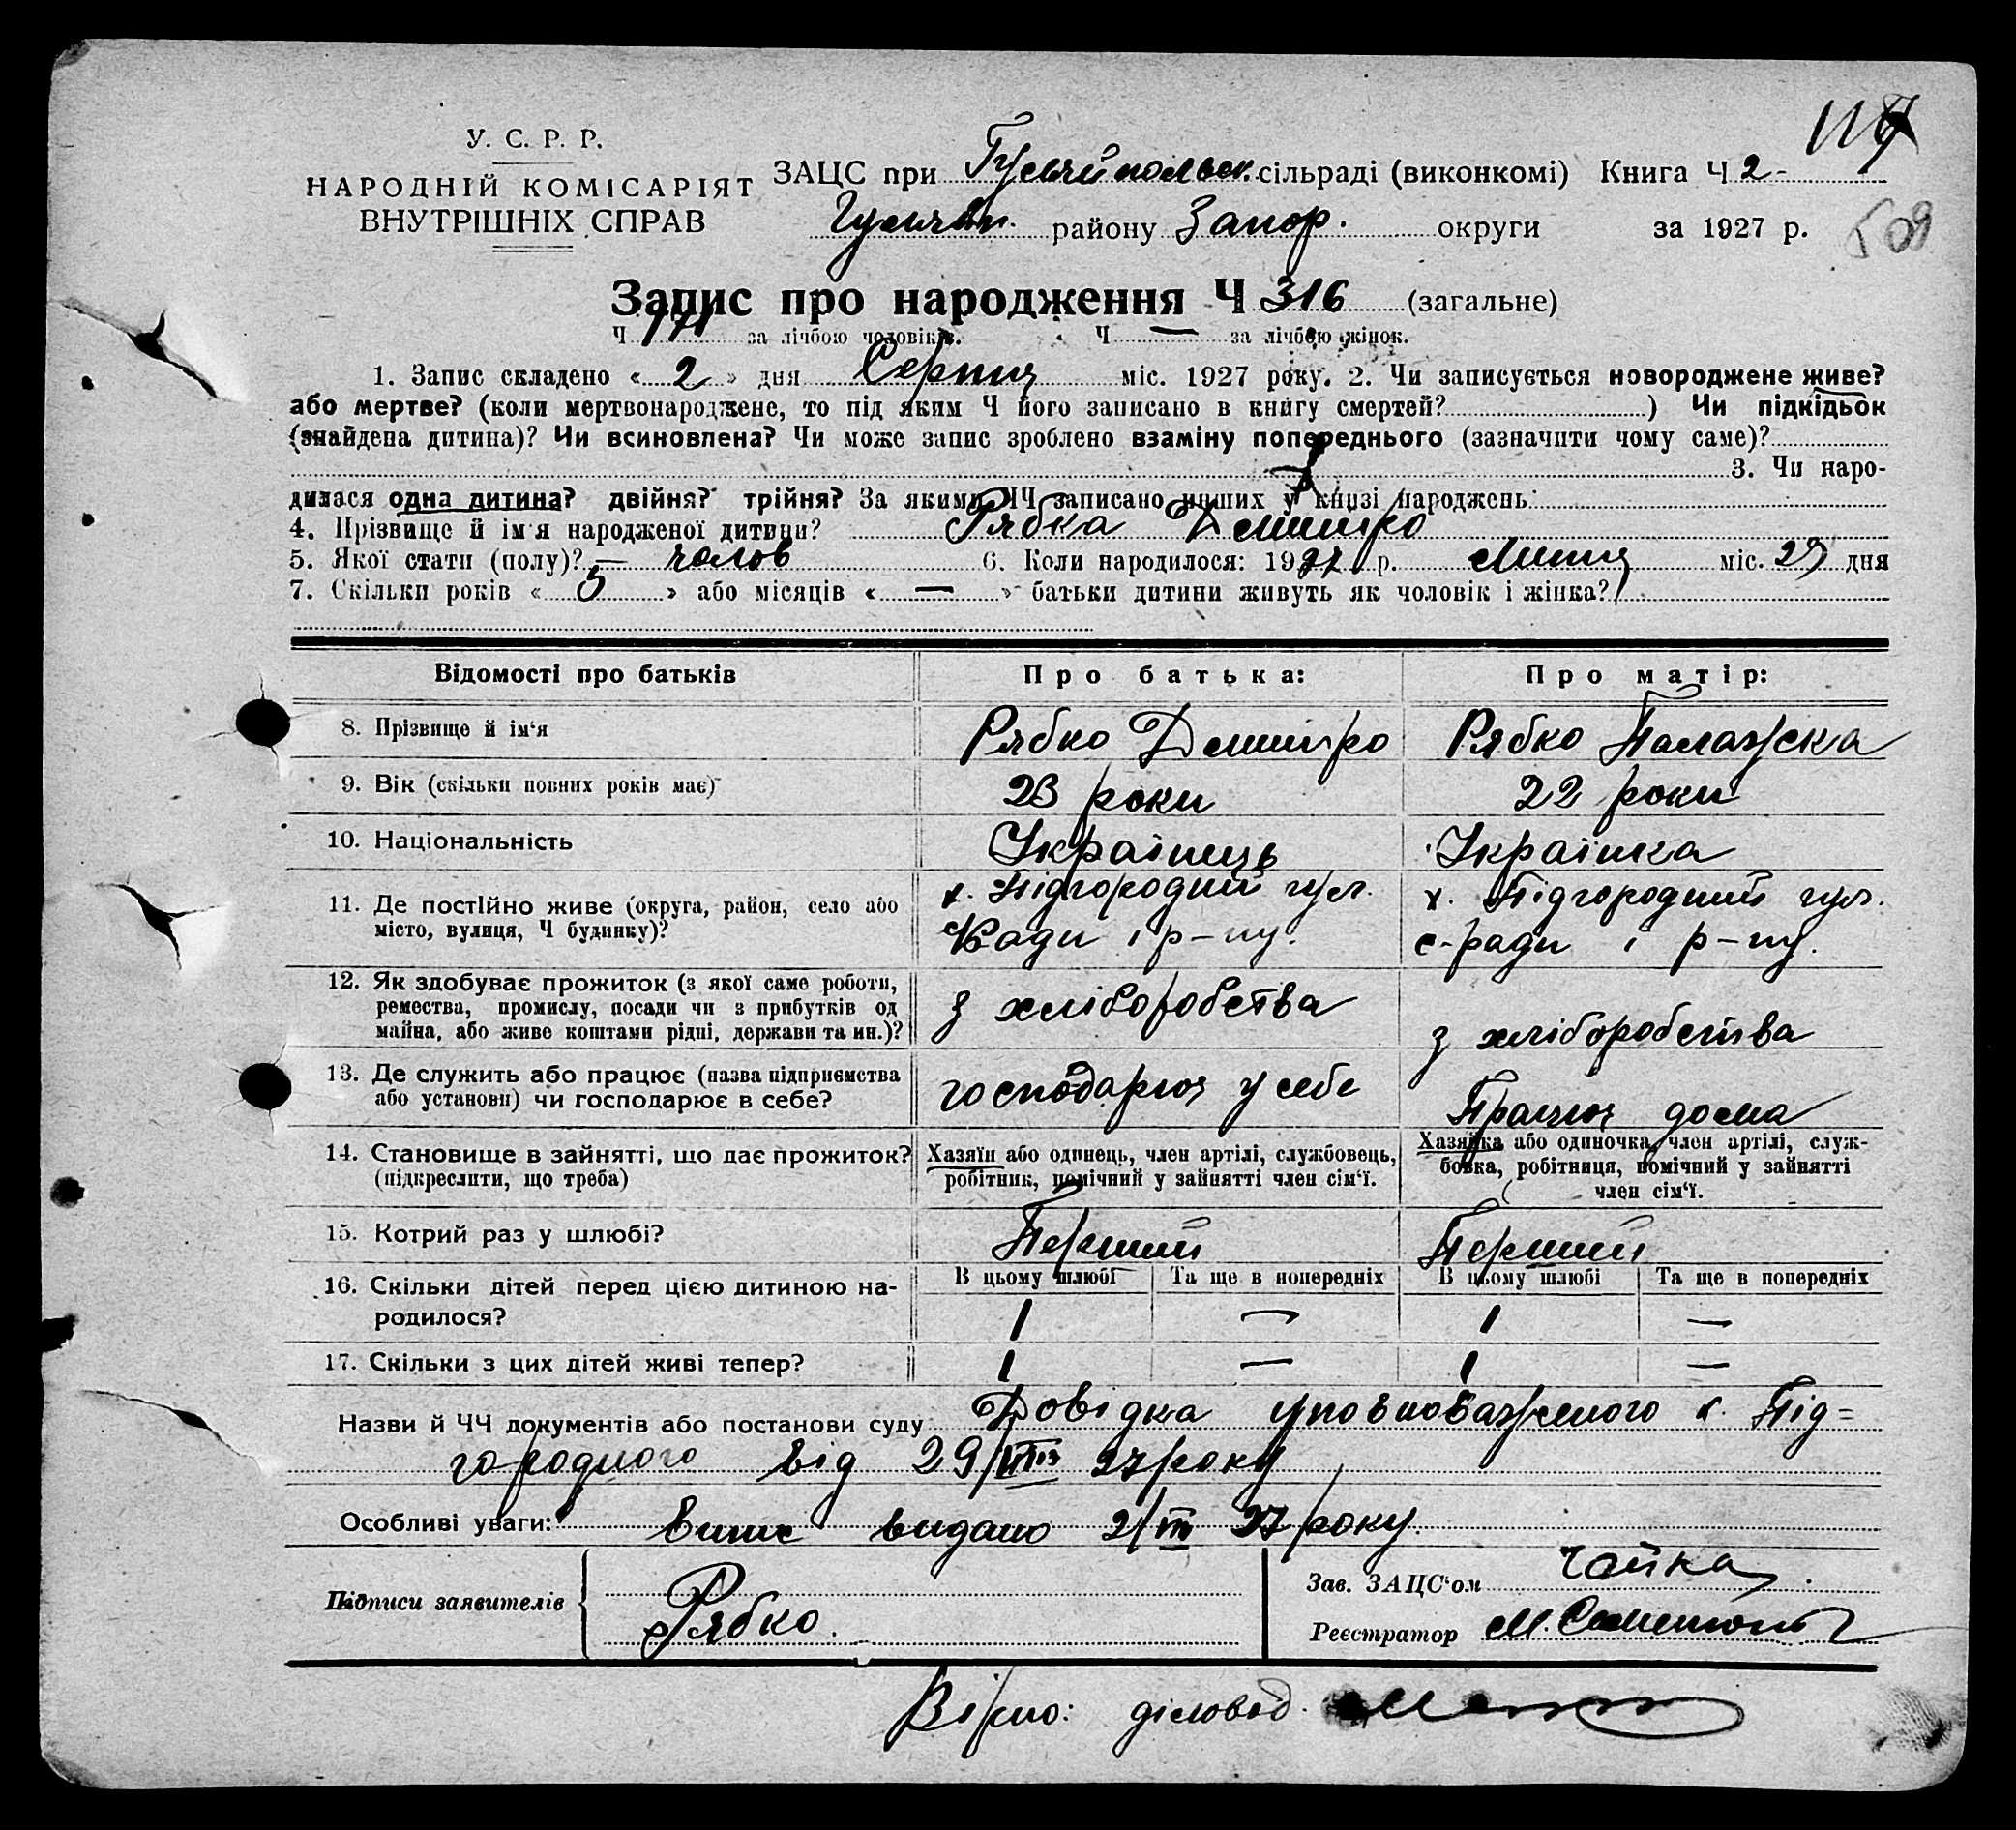 У. С. Р. Р.
НАРОДНІЙ КОМІСАРІЯТ
ВНУТРІШНІХ СПРАВ
ЗАЦС при Гуляйпольск. сільраді (виконкомі) Книга Ч 2
Гуляйп. району Запор. округи за 1927 р.
509
Запис про народження Ч 316 (загальне)
Ч 171 за лічбою чоловіків. Ч — за лічбою жінок.
1. Запис складено « 2 » дня Серпня міс. 1927 року. 2. Чи записується новороджене живе?
або мертве? (коли мертвонароджене, то під яким Ч його записано в книгу смертей? ) Чи підкідьок
(знайдена дитина)? Чи всиновлена? Чи може запис зроблено взаміну попереднього (зазначити чому саме)?
3. Чи наро-
дилася одна дитина? двійня? трійня? За якими ЧЧ записано инших у книзі народжень:
4. Прізвище й ім'я народженої дитини? Рябка Дмитро
5. Якої стати (полу)? — чолов 6. Коли народилося: 1927 р. Липня міс. 29 дня
7. Скільки років « 5 » або місяців « — » батьки дитини живуть як чоловік і жінка?
Відомості про батьків Про батька: Про матір:
8. Прізвище й ім'я Рябко Дмитро Рябко Палажка
9. Вік (скільки повних років має) 23 роки 22 роки
10. Національність Українець Українка
11. Де постійно живе (округа, район, село або місто, вулиця, Ч будинку)? х. Підгородний гул. х. Підгородний гул.
с-ради і р-ну. с-ради і р-ну.
12. Як здобуває прожиток (з якої саме роботи,
ремества, промислу, посади чи з прибутків од
майна, або живе коштами рідні, держави та ин.)? з хліборобства з хліборобства
13. Де служить або працює (назва підприємства
або установи) чи господарює в себе? господарює у себе Працює дома
14. Становище в зайнятті, що дає прожиток?
(підкреслити, що треба)
Хазяїн або одинець, член артілі, службовець,
робітник, помічний у зайнятті член сім'ї.
Хазяйка або одиночка, член артілі, служ-
бовка, робітниця, помічний у зайнятті
член сім'ї.
15. Котрий раз у шлюбі? Перший Перший
16. Скільки дітей перед цією дитиною на-
родилося?
В цьому шлюбі Та ще в попередніх В цьому шлюбі Та ще в попередніх
1 — 1 —
17. Скільки з цих дітей живі тепер? 1 — 1 —
Назви й ЧЧ документів або постанови суду Довідка уповноваженого х. Під=
городного від 29/VII 27 року
Особливі уваги: Випис видано 2/VIII 27 року
Підписи заявителів Рябко.
Зав. ЗАЦС'ом Чайка
Реєстратор М.
Вірно: діловод.